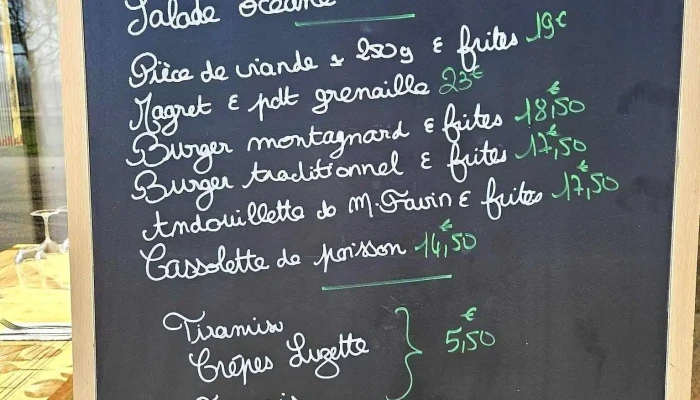 Salade océane
Pièce de viande ± 250g & frites 19€
Magret & pdt grenaille 23€
Burger montagnard & frites 18,50€
Burger traditionnel & frites 17,50€
Andouillette de M. Favin & frites 17,50€
Cassolette de poisson 14,50€
Tiramisu
Crêpes Suzette } 5,50€